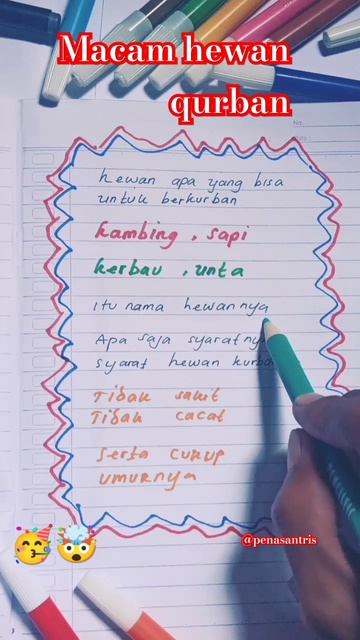 Macam hewan
qurban
No.
hewan apa yang bisa
untuk berkurban
kambing, sapi
kerbau, unta
itu nama hewannya
Apa saja syaratnya
syarat hewan
Tidak sakit
Tidak cacat
Serta cukup
umurnya
@penasantris